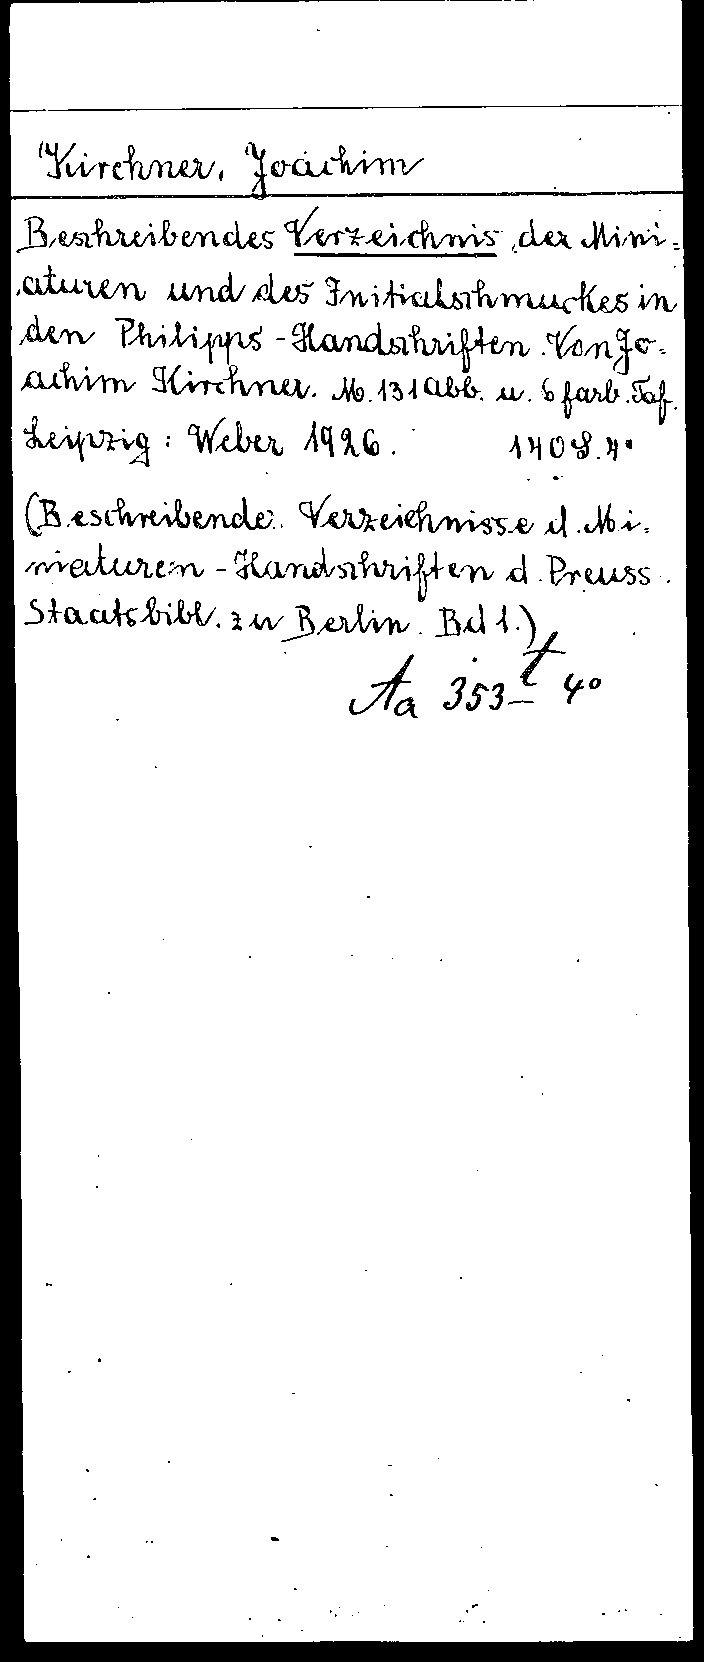 Kirchner, Joachim
Beschreibendes Verzeichnis der Mini=
aturen und des Initialschmuckes in
den Philipps-Handschriften. Von Jo=
achim Kirchner. M. 131 Abb. u. 6 farb. Taf.
Leipzig: Weber 1926. 140 S. 4°
(Beschreibende Verzeichnisse d. Mi=
niaturen-Handschriften d. Preuss.
Staatsbibl. zu Berlin. Bd 1.)
Aa 353 t 4°